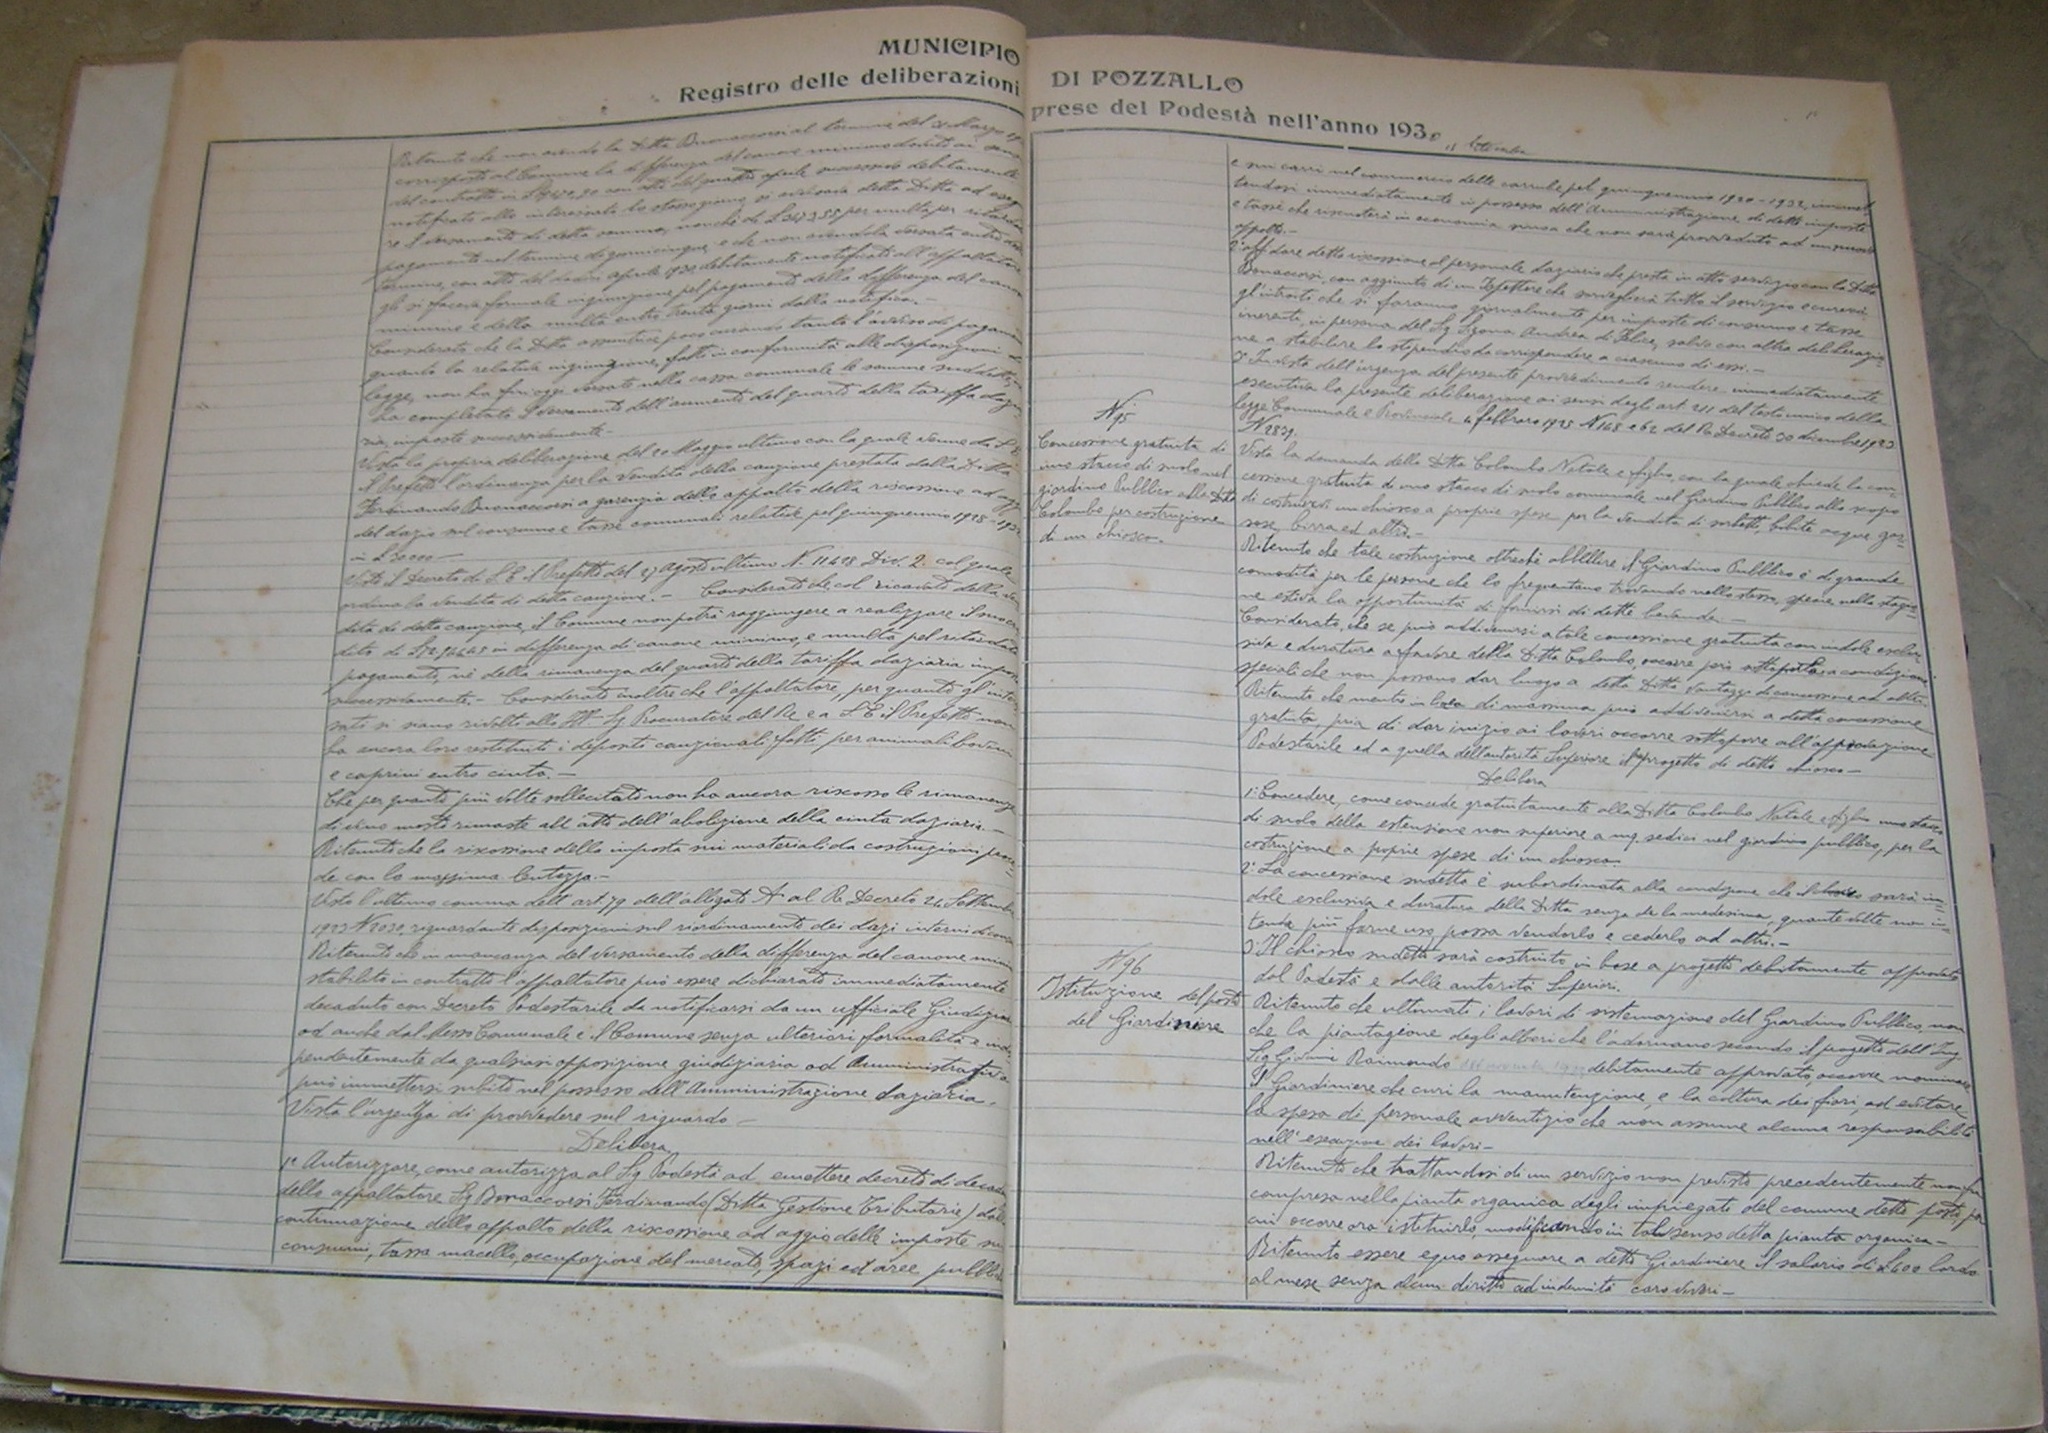 MUNICIPIO DI POZZALLO
Registro delle deliberazioni prese del Podestà nell'anno 1930
Ritenuto che non avendo la Ditta Buonaccorsi al termine del 31 Marzo
corrisposto al Comune la differenza del canone minimo dovuto ai sensi
del contratto in con atto del quattro aprile successivo debitamente
notificato allo interessato lo stesso giorno, si avvisava detta Ditta ad
re il versamento di detta somma, nonchè di per multa per ritardato
pagamento nel termine di giorni cinque, e che non avendola versata entro
termine, con atto del aprile 1930, debitamente notificato all'appaltatore
gli si faceva formale ingiunzione pel pagamento della differenza del canone
minimo e della multa entro trenta giorni dalla notifica.-
Considerato che la Ditta assuntrice poco curando tanto l'avviso di pagamento
quanto la relativa ingiunzione, fatti in conformità alle disposizioni di
legge, non ha fin'oggi versato nella cassa comunale le somme suddette,
ha completato il versamento dell'aumento del quarto della tariffa dazia-
ria, imposte successivamente-
Vista la propria deliberazione del 20 Maggio ultimo con la quale venne da S.E.
il Prefetto l'ordinanza per la vendita della cauzione prestata dalla Ditta
Ferdinando Buonaccorsi a garenzia dello appalto della riscossione ad aggio
del dazio sul consumo e tasse comunali relative pel quinquennio 1928-1932
in L
Visto il Decreto di S.E. il Prefetto del 27 Agosto ultimo N. 11698 Div. 2. col quale
ordina la vendita di detta cauzione.- Considerato che col ricavato della ven
dita di detta cauzione, il Comune non potrà raggiungere a realizzare il suo cre
dito di in differenza di canone minimo, e multa pel ritardato
pagamento, nè della rimanenza del quarto della tariffa daziaria imposta
successivamente.- Considerato inoltre che l'appaltatore, per quanto gl'inte
ressati si siano rivolti allo Sig Procuratore del Re e a S.E. il Prefetto non
ha ancora loro restituito i depositi cauzionali fatti per animali bovini
e caprini entro cinta.-
Che per quanto più volte sollecitato non ha ancora riscosso le rimanenze
di vino mosto rimaste all'atto dell'abolizione della cinta daziaria.-
Ritenuto che la riscossione della imposta sui materiali da costruzioni proce-
de con la massima lentezza.-
Visto l'ultimo comma dell'art. 79 dell'allegato A al R. Decreto 24 Settembre
1923 N 2030, riguardante disposizioni sul riordinamento dei dazi interni di consumo
Ritenuto che in mancanza del versamento della differenza del canone minimo
stabilito in contratto l'appaltatore può essere dichiarato immediatamente
decaduto con Decreto Podestarile da notificarsi da un ufficiale Giudiziario
od anche dal Messo Comunale e il Comune senza ulteriori formalità e indi
pendentemente da qualsiasi opposizione giudiziaria od Amministrativa
può immettersi subito nel possesso dell'Amministrazione daziaria.
Vista l'urgenza di provvedere sul riguardo-
Delibera
1° Autorizzare, come autorizza al Sig Podestà ad emettere decreto di decadenza
dello appaltatore Sig Bonaccorsi Ferdinando (Ditta Gestione Tributarie) dalla
continuazione dello appalto della riscossione ad aggio delle imposte sui
consumi, tassa macello, occupazione del mercato, spazi ed aree pubbliche
e sui carri nel commercio delle carrube, pel quinquennio 1930-1932, immet-
tendosi immediatamente in possesso dell'Amministrazione di dette imposte
e tasse che riscuoterà in economia sino a che non sarà provveduto ad un nuovo
appalto.-
2° Affidare detta riscossione al personale daziario che presta in atto servizio con la Ditta
Bonaccorsi, con aggiunta di un Ispettore che sorveglierà tutto il servizio e curerà
gl'introiti che si faranno giornalmente per imposte di consumo e tasse
inerenti, in persona del Sig Andrea di Felice, salvo con altra deliberazio-
ne a stabilire lo stipendio da corrispondere a ciascuno di essi.-
3° In vista dell'urgenza del presente provvedimento rendere immediatamente
esecutiva la presente deliberazione ai sensi degli art 211 del testo unico della
legge Comunale e Provinciale 4 febbraro 1915 N 148 e 62 del R. Decreto 30 dicembre 1923
N 2839.
N 95
Concessione gratuita di
uno stacco di suolo nel
giardino Pubblico alla Ditta
Colombo per costruzione
di un chiosco.
Vista la domanda della Ditta Colombo Natale e figlio, con la quale chiede la con-
cessione gratuita di uno stacco di suolo comunale nel Giardino Pubblico allo scopo
di costruirvi un chiosco a proprie spese per la vendita di sorbetti, bibite acque gas-
sose, birra ed altro.-
Ritenuto che tale costruzione oltrechè abbellire il Giardino Pubblico è di grande
comodità per le persone che lo frequentano trovando nello stesso, specie nella stagio-
ne estiva la opportunità di fornirsi di dette bevande.-
Considerato, che se può addivenirsi a tale concessione gratuita con indole esclu-
siva e duratura a favore della Ditta Colombo, occorre però sottoporla a condizioni
speciali che non possano dar luogo a detta Ditta vantaggi di concessione ad altri.
Ritenuto che mentre in linea di massima può addivenirsi a detta concessione
gratuita, pria di dar inizio ai lavori occorre sottoporre all'approvazione
Podestarile ed a quella dell'autorità Superiore il progetto di detto chiosco-
Delibera
1° Concedere, come concede gratuitamente alla Ditta Colombo Natale e figlio uno stacco
di suolo della estensione non superiore a mq. sedici nel giardino pubblico, per la
costruzione a proprie spese di un chiosco.
2° La concessione suddetta è subordinata alla condizione che il chiosco sarà in-
dole esclusiva e duratura della Ditta senza che la medesima, quante volte non in-
tenda più farne uso possa venderlo e cederlo ad altri.-
3° Il chiosco sudetto sarà costruito in base a progetto debitamente approvato
dal Podestà e dalle autorità Superiori.
N 96
Istituzione del posto
del Giardiniere
Ritenuto che ultimati i lavori di sistemazione del Giardino Pubblico, non
che la piantagione degli alberi che l'adornano secondo il progetto dell'Ing.
Sig Giovanni Raimondo debitamente approvato, occorre nominare
il Giardiniere che curi la manutenzione, e la coltura dei fiori, ad evitare
la spesa di personale avventizio che non assume alcuna responsabilità
nell'esecuzione dei lavori-
Ritenuto che trattandosi di un servizio non previsto precedentemente non fu
compreso nella pianta organica degli impiegati del comune detto posto, per
cui occorre ora istituirlo, modificando in tal senso detta pianta organica-
Ritenuto essere equo assegnare a detto Giardiniere il salario di L400 lordo
al mese senza alcun diritto ad indennità caro viveri-